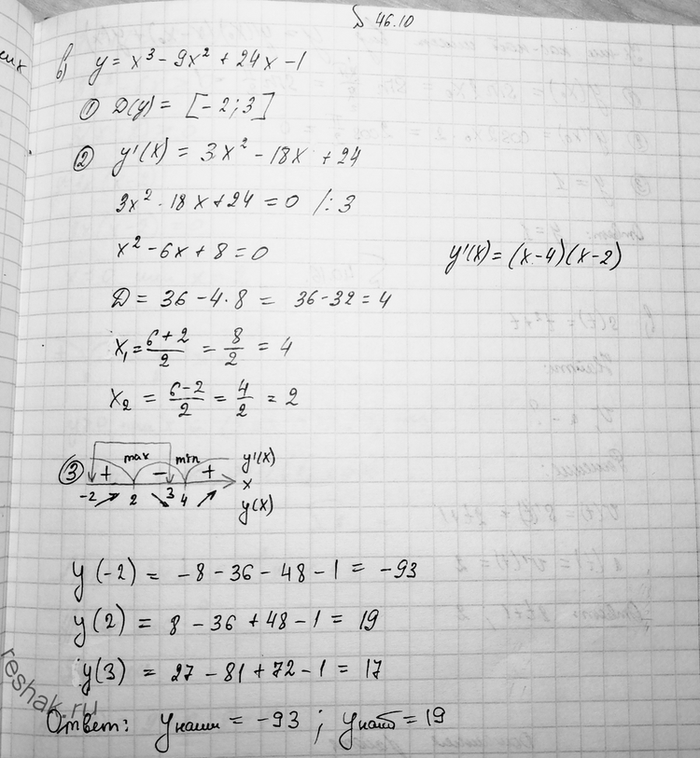 § 46.10
в) y = x³ - 9x² + 24x - 1
① D(y) = [-2; 3]
② y'(x) = 3x² - 18x + 24
3x² - 18x + 24 = 0 /:3
x² - 6x + 8 = 0
y'(x) = (x-4)(x-2)
D = 36 - 4·8 = 36 - 32 = 4
x₁ = (6+2)/2 = 8/2 = 4
x₂ = (6-2)/2 = 4/2 = 2
③ + max - min + y'(x)
x
-2 2 3 4 y(x)
y(-2) = -8 - 36 - 48 - 1 = -93
y(2) = 8 - 36 + 48 - 1 = 19
y(3) = 27 - 81 + 72 - 1 = 17
Ответ: yнаим = -93 ; yнаиб = 19
reshak.ru